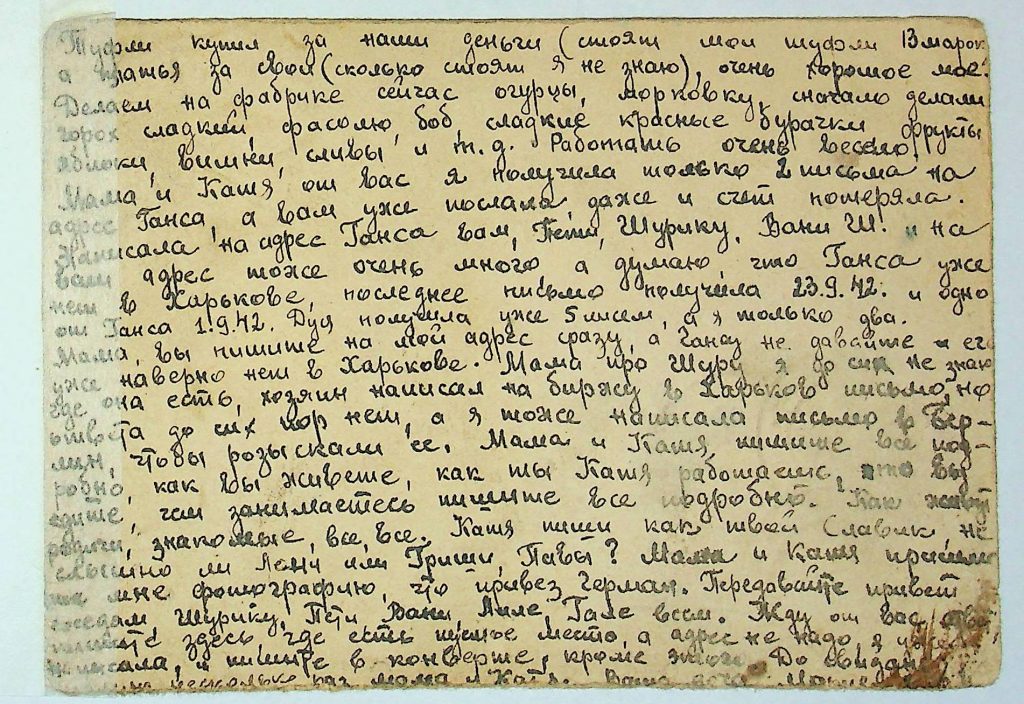 Туфли купил за наши деньги (стоят мои туфли 13 марок
а платья за свои (сколько стоят я не знаю), очень хорошое мое.
Делаем на фабрике сейчас огурцы, морковку, сначало делали
горох сладкий, фасолю, боб, сладкие красные бурачки фрукты
яблоки, вишни, сливы и т.д. Работать очень весело.
Мама и Катя, от вас я получила только 2 письма на
адрес Ганса, а вам уже послала даже и счет потеряла.
Написала на адрес Ганса вам, Пети, Шурику, Вани Ш. и на
ваш адрес тоже очень много, а думаю, что Ганса уже
нет в Харькове, последнее письмо получила 23.9.42. и одно
от Ганса 1.9.42. Дуся получила уже 5 писем, а я только два.
Мама, вы пишите на мой адрес сразу, а Гансу не давайте его
уже наверно нет в Харькове. Мама про Шуру я до сих не знаю
где она есть, хозяин написал на биржу в Харьков письмо, но
ответа до сих пор нет, а я тоже написала письмо в Бер-
лин, чтобы розыскали ее. Мама и Катя, пишите все под-
робно, как вы живете, как ты Катя работаешь, что вы
едите, чем занимаетесь пишите все подробно. Как живут
родичи, знакомые, все, все. Катя пиши как твой Славик, не
слышно ли Лени или Гриши, Павы? Мама и Катя пришли
те мне фотографию, что привез Герман. Передавайте привет
соседам Шурику, Пети Вани, Лиле, Гале всем. Жду от вас
пишите здесь где есть пустое место, а адрес не надо, я уже
написала, и пишите в конверте, кроме этого. До свидан
несколько раз мама и Катя. Ваша